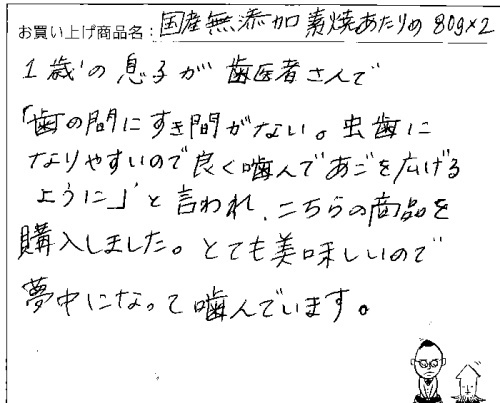 お買い上げ商品名：国産無添加 素焼あたりめ 80g×2
1歳の息子が歯医者さんで
「歯の間にすき間がない。虫歯に
なりやすいので良く噛んであごを広げる
ように」と言われ、こちらの商品を
購入しました。とても美味しいので
夢中になって噛んでいます。